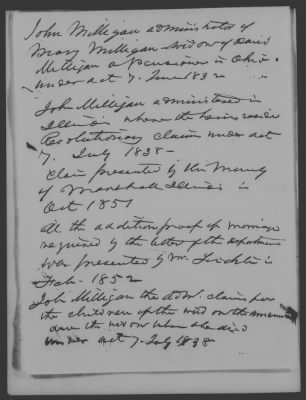 John Milligan administrator of
Mary Milligan widow of David
Milligan a Pensioner in Ohio.
under act 7. June 1832
John Milligan administered in
Illinois where the heirs reside
Revolutionary claim under act
7. July 1838 –
Claim presented by
of Marshall Illinois in
Oct 1851
All the addition proof of marriage
required by the letter of the department
was presented by Mr. Ficklin in
Feb. 1852
John Milligan the adm. claims for
the children of the widow the amount
due the widow when she died
under act 7. July 1838